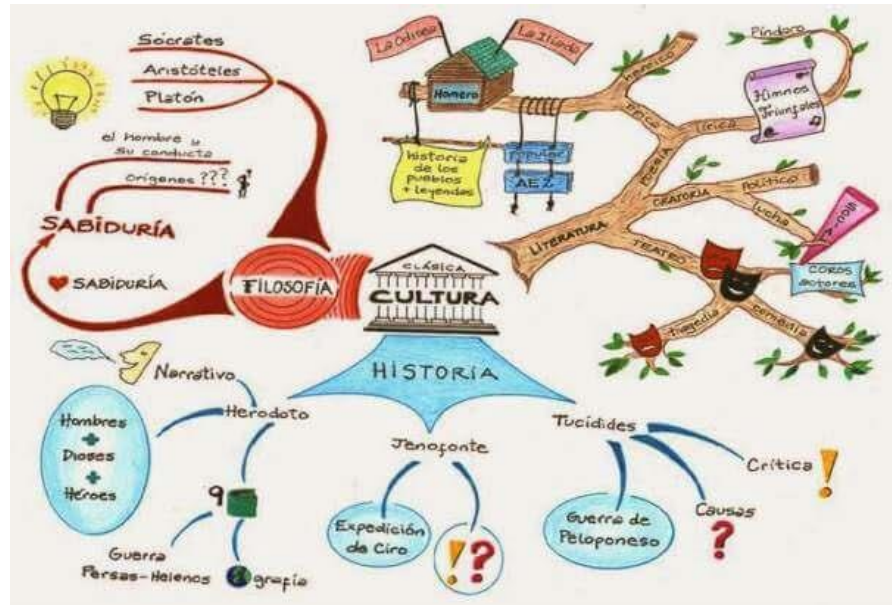 Sócrates
Aristóteles
Platón
el hombre y
su conducta
Orígenes ???
SABIDURÍA
SABIDURÍA
FILOSOFÍA
CLÁSICA
CULTURA
HISTORIA
La Odisea
La Ilíada
Homero
historia
de los
pueblos
+ leyendas
popular
AEZ
heroica
épica
POESÍA
lírica
Píndaro
Himnos
Triunfales
LITERATURA
ORATORIA
Político
lucha
TEATRO
COROS
actores
tragedia
comedia
Narrativo
Herodoto
Hombres
+
Dioses
+
Héroes
9
Guerra
Persas-Helenos
grafía
Jenofonte
Expedición
de Ciro
!?
Tucídides
Guerra de
Peloponeso
Causas
?
Crítica !